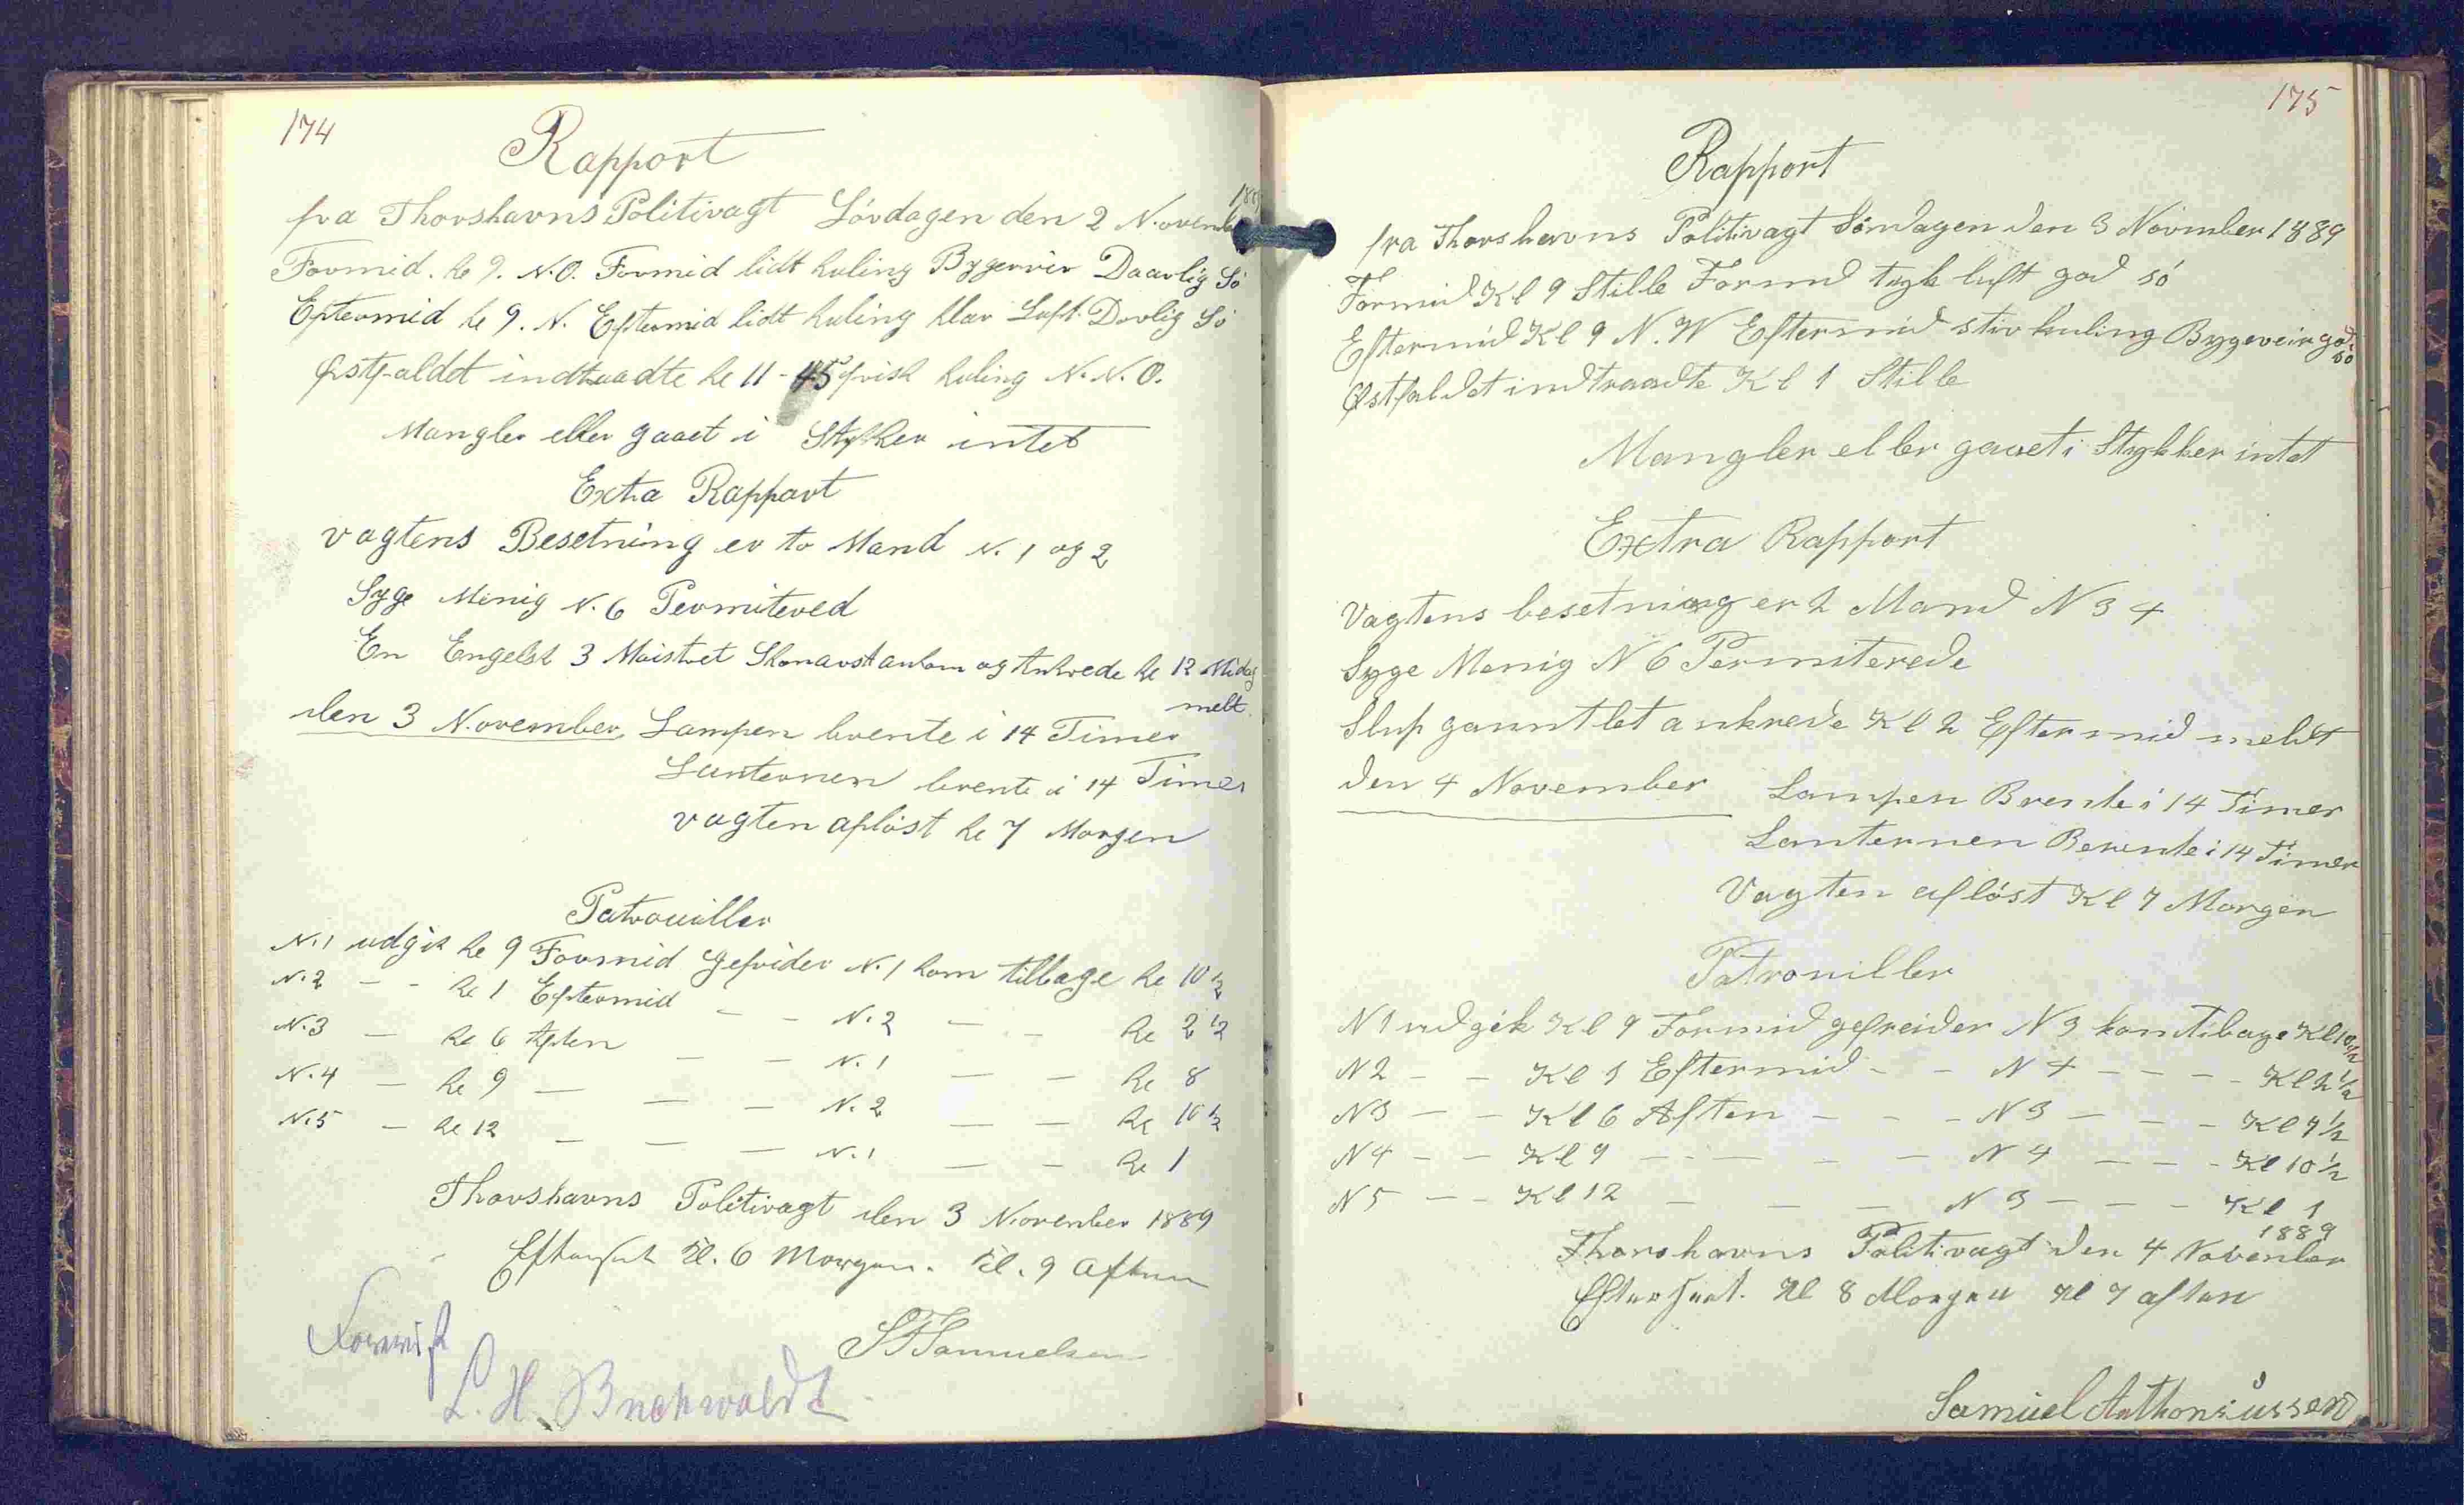 174
Rapport
1889
fra Thorshavns Politivagt Lördagen den 2 November
Formid. kl 9. N.O. Formid lidt kuling Bygerveir Daarlig Sö
Eftermid kl 9. N. Eftermid lidt kuling klar Luft Dorlig Sö
Østfaldet indtraadte kl 11-45 frisk kuling N.N.O.
Mangler eller gaaet i Stykker intet
Extra Rapport
vagtens Besetning er to Mand N. 1 og 2
Syge Menig N. 6 Permitered
En Engelsk 3 Maistret Skonart ankom og Ankrede kl 12 Midag
melt
den 3 November, Lampen brente i 14 Timer
Lanternen brente i 14 Timer
vagten aflöst kl 7 Morgen
Patrouiller
N.1 udgik kl 9 Formid Gefrider N.1 kom tilbage kl 10 1/2
N.2 - - kl 1 Eftermid - - N.2 - - kl 2 1/2
N.3 - kl 6 Aften - - N.1 - - kl 8
N.4 - kl 9 - - - N.2 - - kl 10 1/2
N.5 - kl 12 - - - N.1 - - kl 1
Thorshavns Politivagt den 3 November 1889
Efterseet Kl. 6 Morgen. Kl. 9 Aften
S Samuelsen
L. H. Buchwaldt
175
Rapport
fra Thorshavns Politivagt Söndagen den 3 November 1889
Formid Kl 9 Stille Formd tyk luft god sö
Eftermid Kl 9 N.W Eftermid stiv kuling Bygeveir god
sö
Østfaldet indtraadte Kl 1 Stille
Mangler eller gaaet i Stykker intet
Extra Rapport
Vagtens besetning er 2 Mand N 3 4
Syge Menig N 6 Permiterede
Slup gauntlet ankrede Kl 2 Eftermid meldt
den 4 November Lampen Brente i 14 Timer
Lanternen Berente i 14 Timer
Vagten aflöst Kl 7 Morgen
Patrouiller
N 1 udgik Kl 9 Formid gefreider N 3 kom tibage Kl 10 1/2
N 2 - - Kl 1 Eftermid - - N 4 - - - - Kl 2 1/2
N 3 - - Kl 6 Aften - - - N 3 - - - Kl 7 1/2
N 4 - - Kl 9 - - - - N 4 - - - Kl 10 1/2
N 5 - - Kl 12 - - - N 3 - - - Kl 1
1889
Thorshavns Politivagt den 4 November
Efterseet. Kl 8 Morgen Kl 7 aften
Samuel Anthoniussen